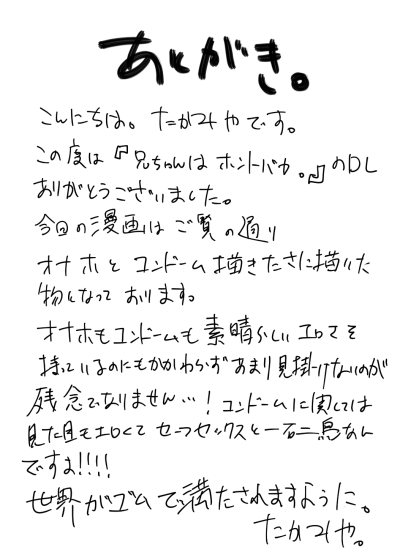 あとがき。
こんにちは。たかつやです。
この度は『兄ちゃんはホントバカ。』のDL
ありがとうございました。
今回の漫画はご覧の通り
オナホとコンドーム描きたさに描いた
物になっております。
オナホもコンドームも素晴らしいエロさを
持っているのにもかかわらずあまり見掛けないのが
残念でなりません…!コンドームに関しては
見た目もエロくてセーフセックスと一石二鳥なん
ですよ!!!!
世界がゴムで満たされますように。
たかつや。